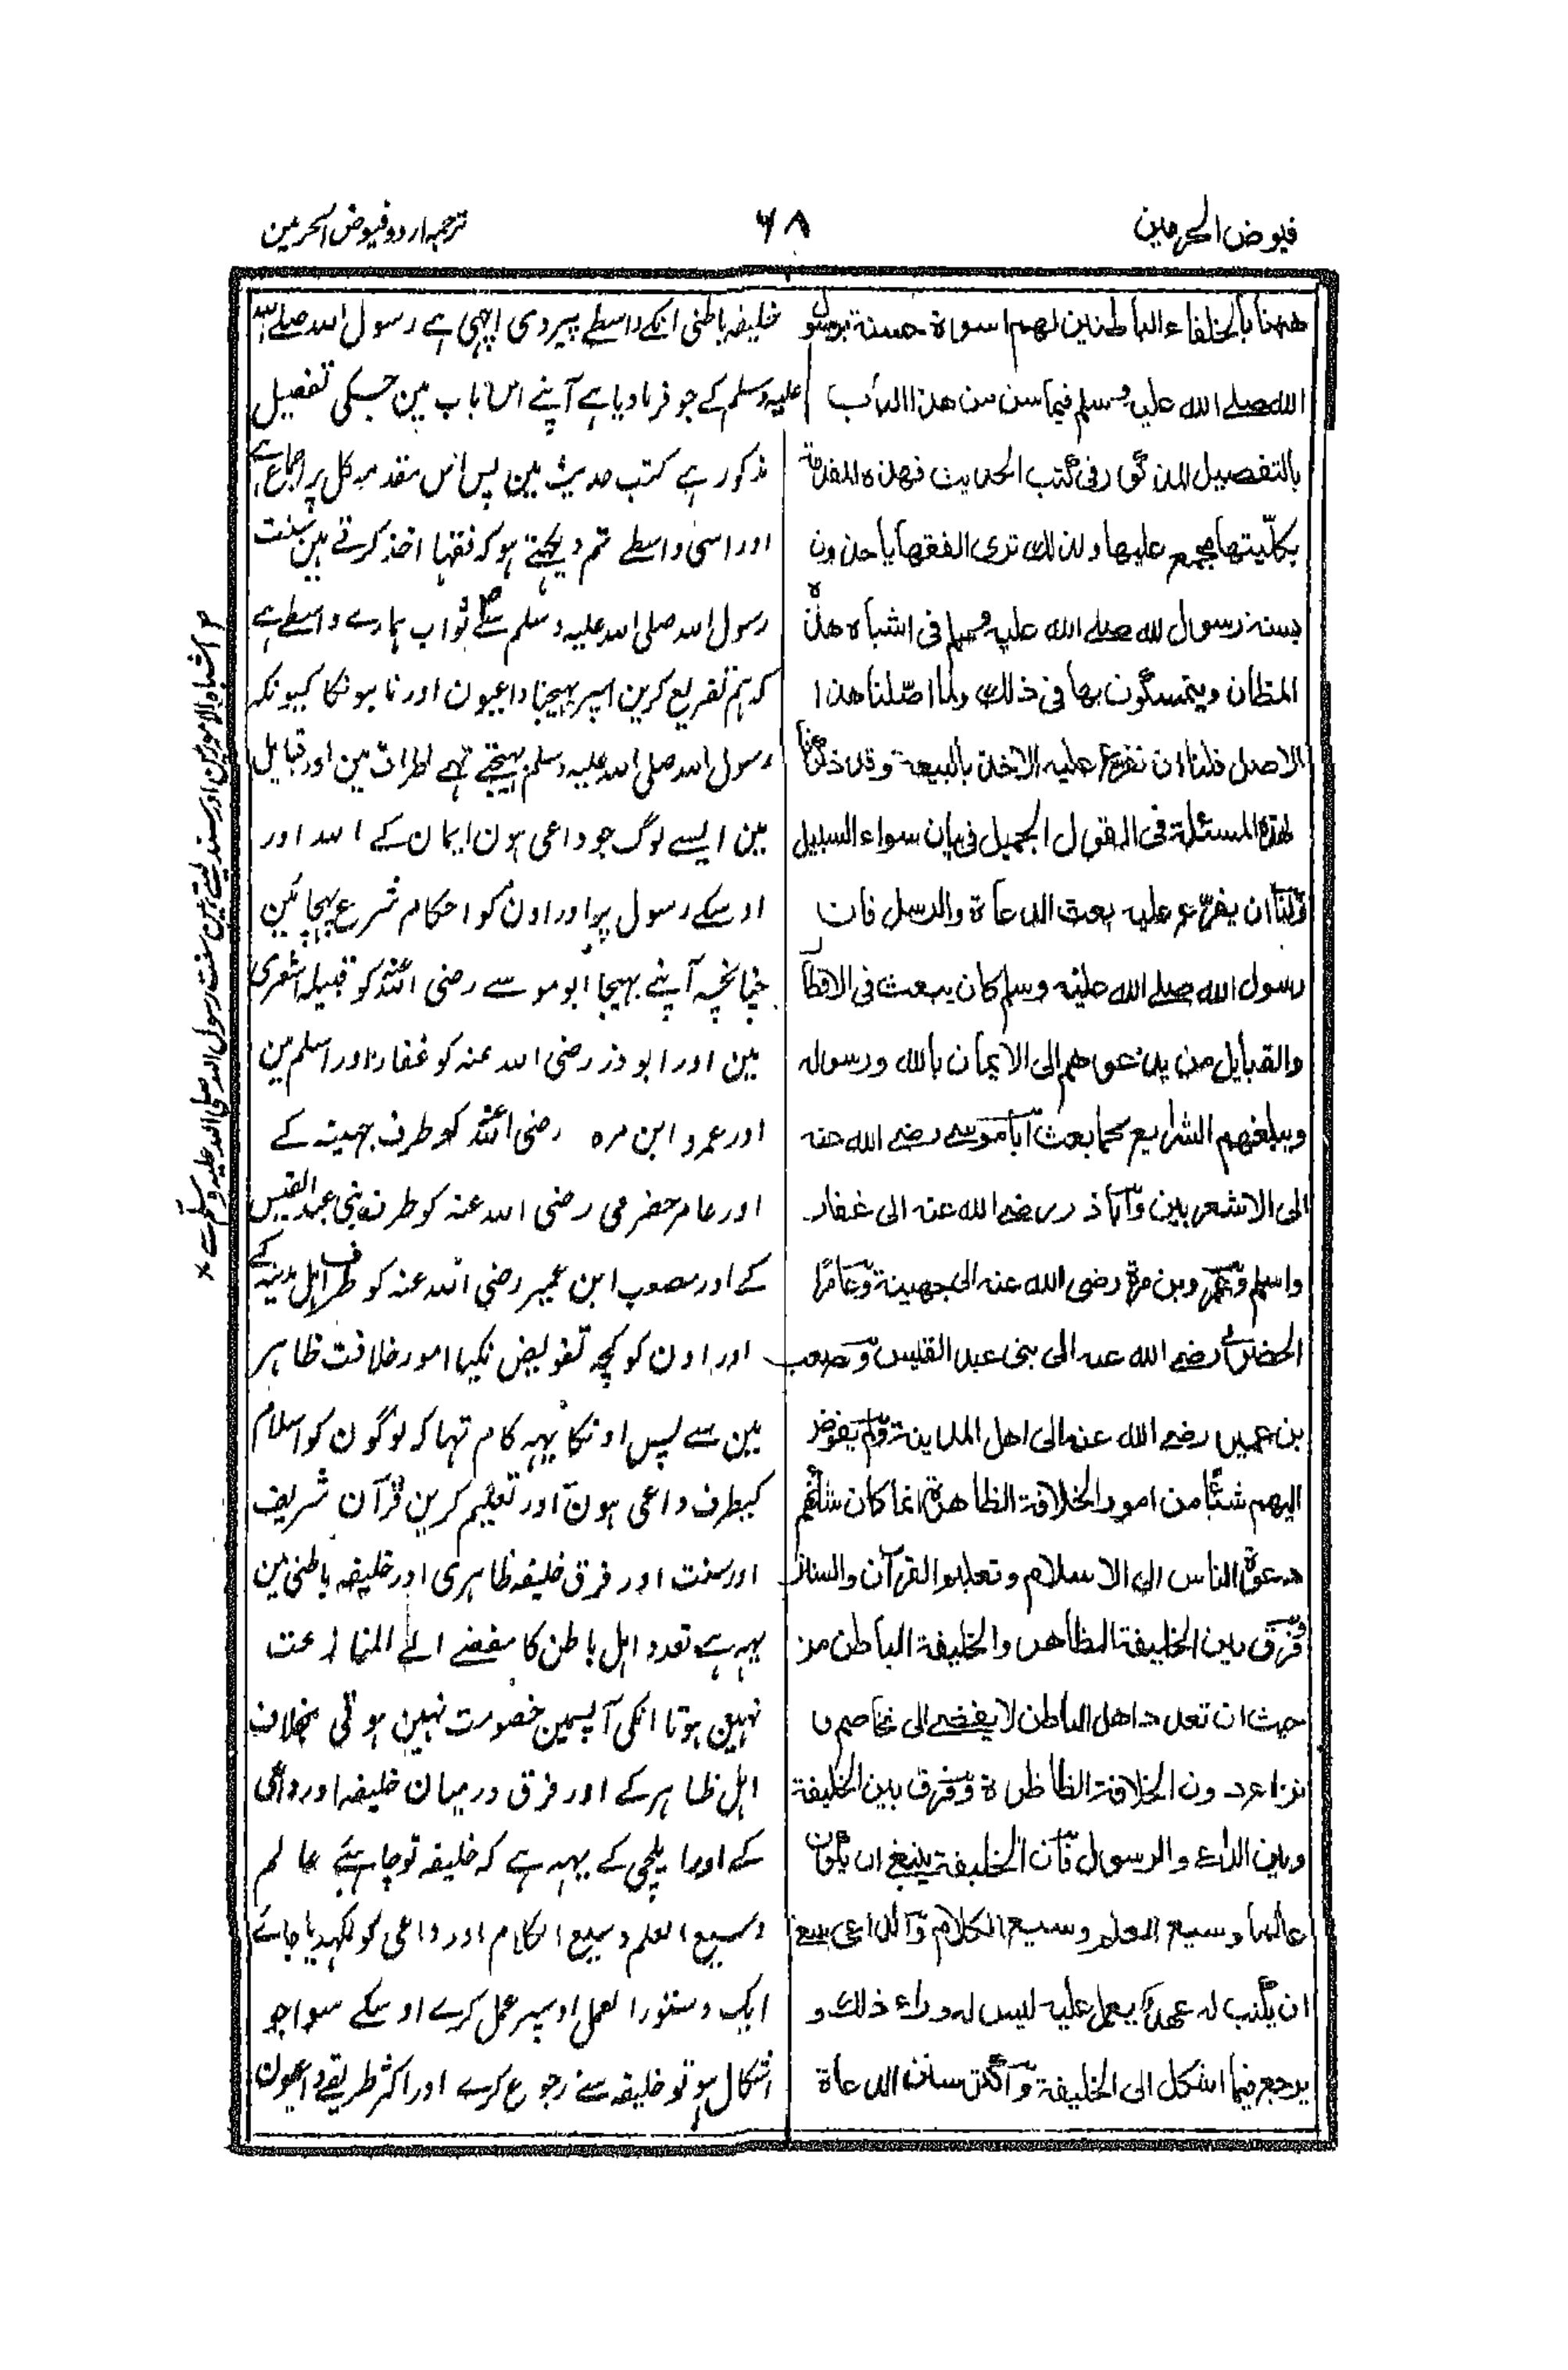 فیوض الحرمین
۶۸
ترجمہ اردو فیوض الحرمین
ههنا بالخلفاء الباطنين لهم اسوة حسنة برسول
الله صلے الله عليه وسلم فيما سن من هذا الباب
بالتفصيل المذكور فى كتب الحديث فهذه المقدمة
بكلّيتها مجمع عليها ولذلك ترى الفقها ياخذون
بسنة رسول الله صلے الله عليه وسلم فى اشباه هذه
المظان ويتمسكون بها فى ذلك ولما اصّلنا هذا
الاصل فلنا ان نفرع عليه الاخذ بالبيعة وقد ذكرنا
هذه المسئلة فى القول الجميل فى بيان سواء السبيل
ولنا ان يفرّع عليه بعث الدعاة والرسل فان
رسول الله صلے الله عليه وسلم كان يبعث فى الاقطار
والقبايل من يدعوهم الى الايمان بالله ورسوله
ويبلغهم الشرايع كما بعث اباموسے رضے الله عنه
الى الاشعريين واباذر رضے الله عنه الى غفار
واسلم وعمرو بن مرة رضى الله عنه الى جهينة وعامرا
الحضرمى رضے الله عنه الى بنى عبد القيس ومصعب
بن عمير رضے الله عنه الى اهل المدينة ولم يفوض
اليهم شيئا من امور الخلافة الظاهرة انما كان شانهم
دعوة الناس الى الاسلام وتعليم القرآن والسنة
وفرق بين الخليفة الظاهر والخليفة الباطن من
حيث ان تعدد اهل الباطن لا يفضے الى تخاصم و
نزاع دون الخلافة الظاهرة وفرق بين الخليفة
وبين الداعے والرسول فان الخليفة ينبغے ان يكون
عالما وسيع العلم وسيع الكلام والداعى يسع
ان يكتب له عهدا يعمل عليه ليس له وراء ذلك و
يرجع فيما اشكل الى الخليفة واكثر سنن الدعاة
خلیفہ باطنی انکے واسطے پیروی اچھی ہے رسول اللہ صلے اللہ
علیہ وسلم کے جو فرمادیا ہے آپنے اس باب مین جسکی تفصیل
مذکور ہے کتب حدیث مین پس اس مقدمہ کل پر اجماع ہے
اور اسی واسطے تم دیکھتے ہو کہ فقہا اخذ کرتے ہین سنت
رسول اللہ صلی اللہ علیہ وسلم سے تو اب ہمارے واسطے ہے
کہ ہم تفریع کرین اسپر بھیجنا داعیون اور نایبونکا کیونکہ
رسول اللہ صلی اللہ علیہ وسلم بھیجتے تھے اطراف مین اور قبایل
مین ایسے لوگ جو داعی ہون ایمان کے اللہ اور
اوسکے رسول پر اور اون کو احکام شرع پہنچائین
چنانچہ آپنے بھیجا ابو موسے رضی اللہ عنہ کو قبیلہ اشعری
مین اور ابو ذر رضی اللہ عنہ کو غفار اور اسلم مین
اور عمرو ابن مرہ رضی اللہ عنہ کو طرف جہینہ کے
اور عامر حضرمی رضی اللہ عنہ کو طرف بنی عبد القیس
کے اور مصعب ابن عمیر رضی اللہ عنہ کو طرف اہل مدینہ کے
اور اون کو کچھ تفویض نکیا امور خلافت ظاہر
مین سے پس اونکا یہہ کام تہا کہ لوگون کو اسلام
کیطرف داعی ہون اور تعلیم کرین قرآن شریف
اور سنت اور فرق خلیفہ ظاہری اور خلیفہ باطنی مین
یہہ ہے تعدد اہل باطن کا مفضے الے المنازعت
نہین ہوتا انکی آپسمین خصومت نہین ہوتی بخلاف
اہل ظاہر کے اور فرق درمیان خلیفہ اور داعی
کے اور ایلچی کے یہہ ہے کہ خلیفہ تو چاہئے عالم
وسیع العلم وسیع الکلام اور داعی کو لکھدیا جائے
ایک دستور العمل اوسپر عمل کرے اوسکے سوا جو
اشکال ہو تو خلیفہ سے رجوع کرے اور اکثر طریقے داعیون
اشباہ الامور مین اور سند لیتے ہین سنت رسول اللہ صلی اللہ علیہ وسلم سے